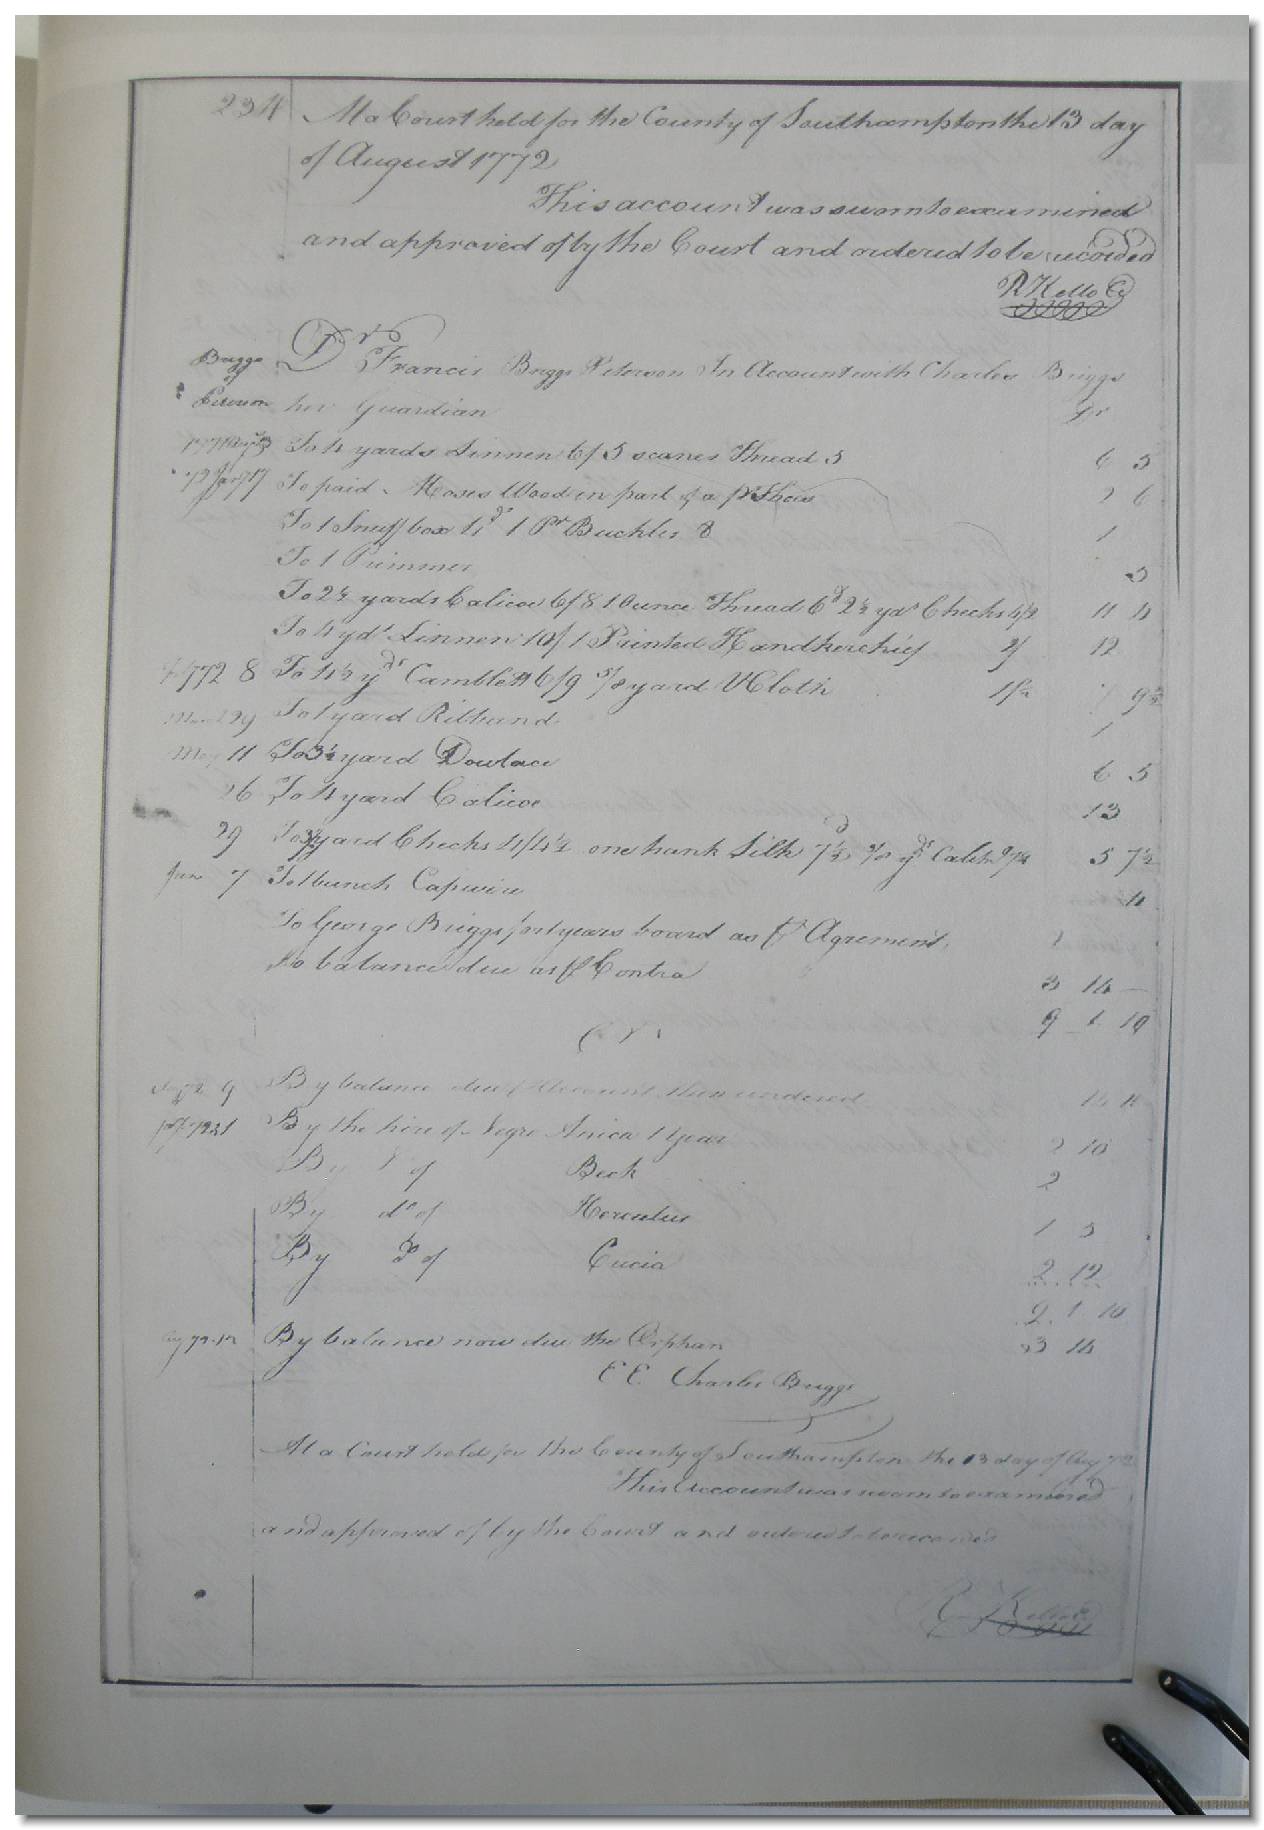 234 At a Court held for the County of Southampton the 13 day
of August 1772
This account was sworn to examined
and approved of by the Court and ordered to be recorded
R Kello C
Briggs Dr Francis Briggs Peterson In Account with Charles Briggs
her Guardian Dr
To 4 yards Linnen 6/ 5 scanes Thread 5 6 5
To paid Moses Wood in part of a pr Shoes 2 6
To 1 Snuff box 1 Pr Buckles 8 1
To 1 Primmer
To 2½ yards Calicoe 6/8 1 Ounce Thread 6d 2½ yds Checks 4/2 11 4
To 4 yds Linnen 10/ 1 Printed Handkerchief 2/ 12
1772 8 To 4½ yds Camblett 6/9 5/8 yard Cloth 9½
29 To 1 yard Ribband 1
May 11 To 3½ yard Dowlace 6 5
26 To 4 yard Calicoe 13
29 yard Checks 4/4½ one hank Silk 7½d 5 7½
Jun 7 To 1 bunch Capwire 4
To George Briggs for 1 years board as pr Agrement
To balance due as pr Contra 3 14 —
9 1 10
Cr
9 By balance due
By the hire of Negro Anica 1 Year 2 10
By of Beck 2
By do of Hercules 1 5
By Do of 2 12
9 1 10
By balance now due the Orphan 3 14
E E. Charles Briggs
At a Court held for the County of Southampton the 13 day of Aug 72
This Account was sworn to examined
and approved of by the Court and ordered to be recorded
R Kello C